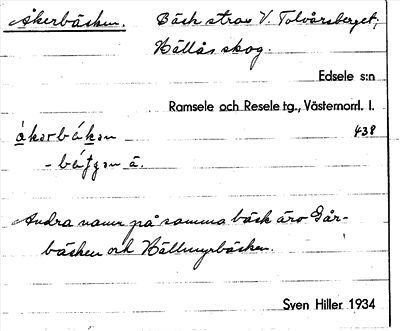 Åkerbäcken. Bäck strax V. Tolvårsberget;
Hällås skog.
Edsele s:n
Ramsele och Resele tg., Västernorrl. l.
åkerbäken 438
- bäʃʃen ä.
Andra namn på samma bäck äro Går-
bäcken och Hällmyrbäcken.
Sven Hiller 1934